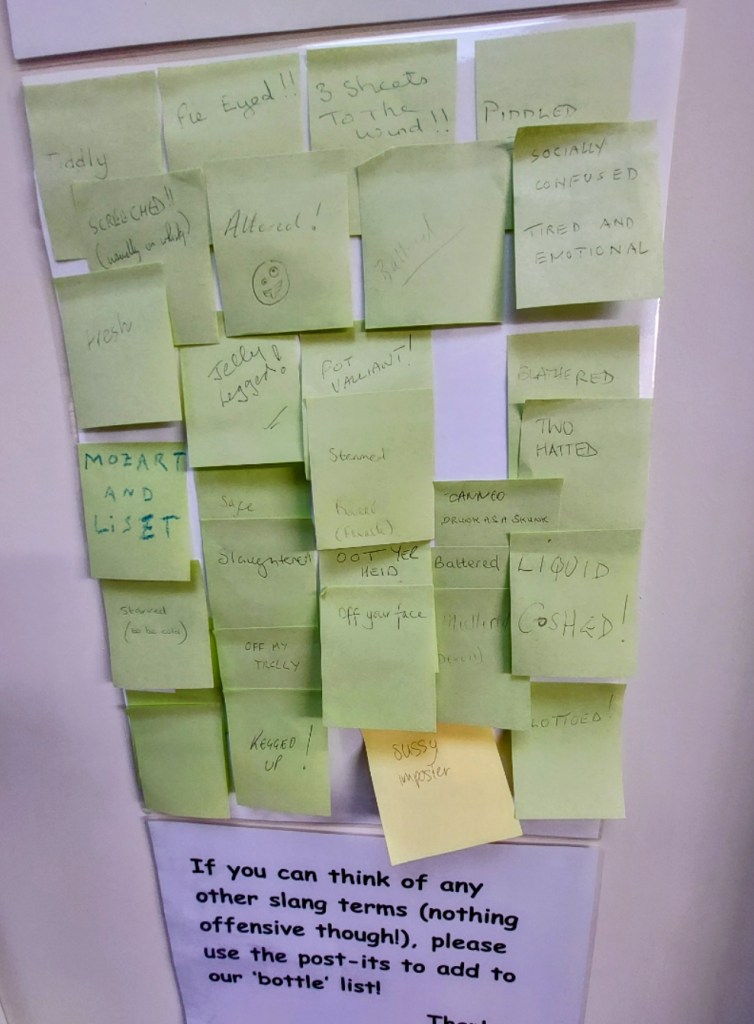 Tiddly
Pie Eyed!!
3 Sheets
To The
Wind!!
PIDDLED
SCREECHED!!
(usually on
Altered!
Battered
SOCIALLY
CONFUSED
TIRED AND
EMOTIONAL
Fresh
Jelly
Legged!
POT
VALLIANT!
BLATHERED
Steamed
(
TWO
HATTED
MOZART
AND
LISZT
Safe
CANNED
DRUNK AS A SKUNK
Slaughtered
OOT YER
HEID
Battered
LIQUID
COSHED!
Starved
Off your face
OFF MY
TROLLY
KEGGED
UP!
LOTTOED!
sussy
imposter
If you can think of any
other slang terms (nothing
offensive though!), please
use the post-its to add to
our 'bottle' list!